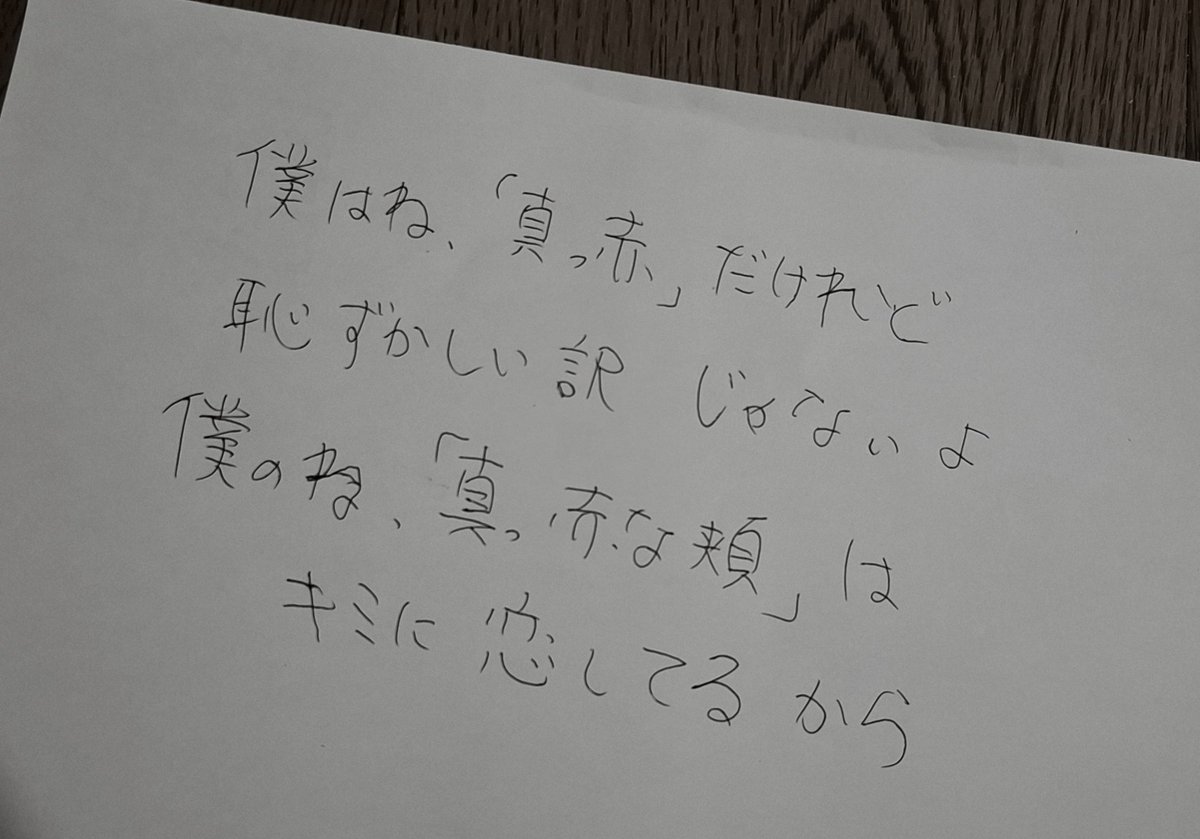 僕はね、「真っ赤」だけれど
恥ずかしい訳 じゃないよ
僕のね、「真っ赤な頬」は
キミに 恋してる から